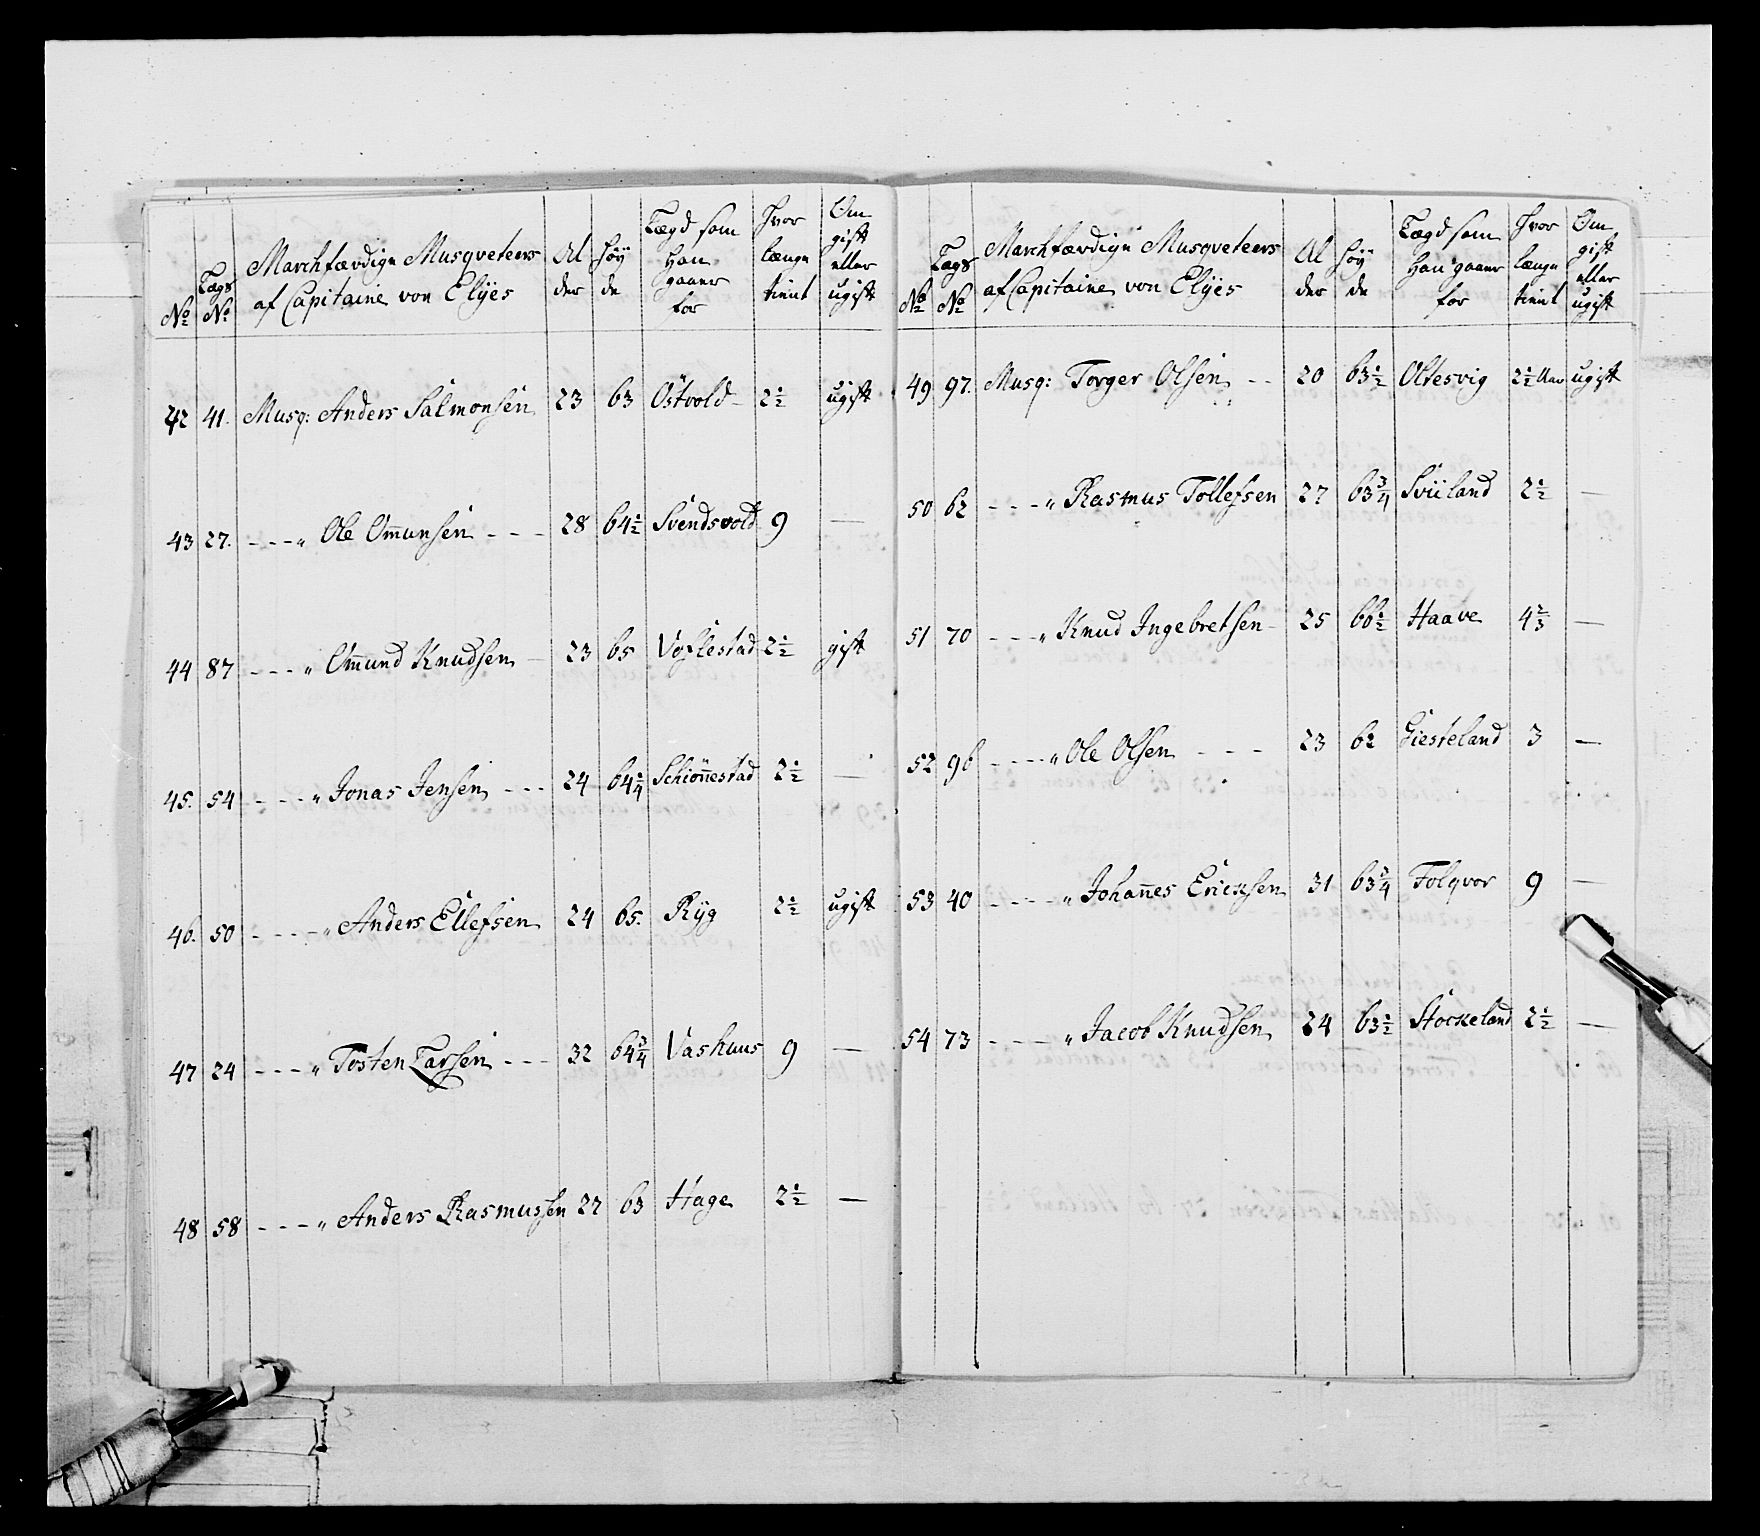 No
Lægs No
Marchfærdige Musqveteers
af Capitaine von Elÿes
Al
der
Høÿ
de
Lægd som
Han
gaaer
for
Hvor
længe
tient
Om
gift
eller
ugift
42 41. Musq: Anders Salmonsen 23 63 Östvold 2½ ugift
43 27. - - - " Ole Omunsen - - - 28 64½ Svendsvold 9 —
44 87 - - - " Omund Knudsen - 23 65 Voflestad 2½ gift
45. 54 - - - " Jonas Jensen - - - 24 64¼ Schiönnestad 2½ —
46. 50 - - - - " Anders Ellefsen 24 65. Rÿg 2½ ugift
47 24 - - - " Tosten Larsen - - - 32 64¾ Vashuus 9 —
48 58 - - - " Anders Rasmussen 27 63 Hage 2½ —
No
Lægs No
Marchfærdige Musqveteers
af Capitaine von Elÿes
Al
der
Høÿ
de
Lægd som
Han gaaer
for
Hvor
længe
tient
Om
gift
eller
ugift
49 97. Musq: Torger Olsen - - 20 63½ Oltesvig 2½ Aar ugift
50 62 - - - " Rasmus Tollefsen 27 63¾ Sviiland 2½ —
51 70 - - - " Knud Ingebretsen 25 66½ Haave 4⅔ —
52 96 - - - - " Ole Olsen - - - 23 62 Giesteland 3 —
53 40 - - - - " Johannes Ericksen 31 63¾ Folqvor 9 —
54 73 - - - - " Jacob Knudsen 24 63½ Stockeland 2½ —